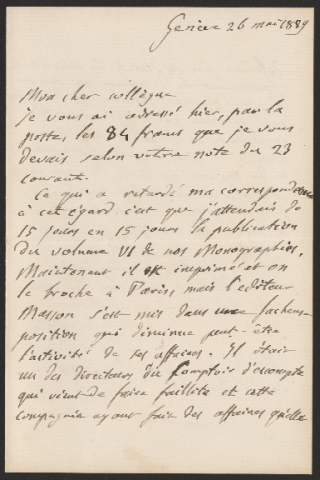 Genève 26 mai 1889
Mon cher collègue
je vous ai adressé hier, par la
poste, les 84 francs que je vous
devais selon votre note du 23
courant.
Ce qui a retardé ma correspondance
à cet égard c'est que j'attendais de
15 jours en 15 jours la publication
du volume VI de nos Monographies.
Maintenant il est imprimé et on
le broche à Paris, mais l'éditeur
Masson s'est mis dans une facheuse
position qui diminue peut-être
l'activité de ses affaires. Il était
un des directeurs du Comptoir d'escompte
qui vient de faire faillite et cette
compagnie ayant fait des affaires qu'elle